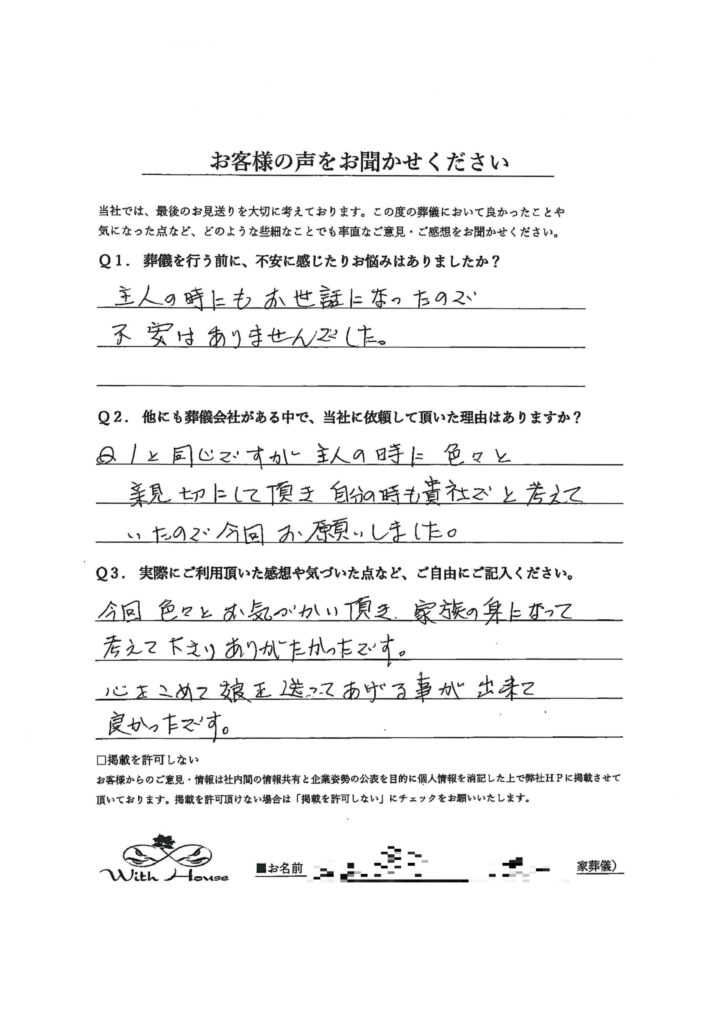 お客様の声をお聞かせください
当社では、最後のお見送りを大切に考えております。この度の葬儀において良かったことや
気になった点など、どのような些細なことでも率直なご意見・ご感想をお聞かせください。
Q1. 葬儀を行う前に、不安に感じたりお悩みはありましたか？
主人の時にもお世話になったので
不安はありませんでした。
Q2. 他にも葬儀会社がある中で、当社に依頼して頂いた理由はありますか？
Q1と同じですが主人の時に色々と
親切にして頂き自分の時も貴社でと考えて
いたので今回お願いしました。
Q3. 実際にご利用頂いた感想や気づいた点など、ご自由にご記入ください。
今回色々とお気づかい頂き、家族の身になって
考えて下さりありがたかったです。
心をこめて娘を送ってあげる事が出来て
良かったです。
□掲載を許可しない
お客様からのご意見・情報は社内間の情報共有と企業姿勢の公表を目的に個人情報を消記した上で弊社HPに掲載させて
頂いております。掲載を許可頂けない場合は「掲載を許可しない」にチェックをお願いいたします。
With House ■お名前 家葬儀）